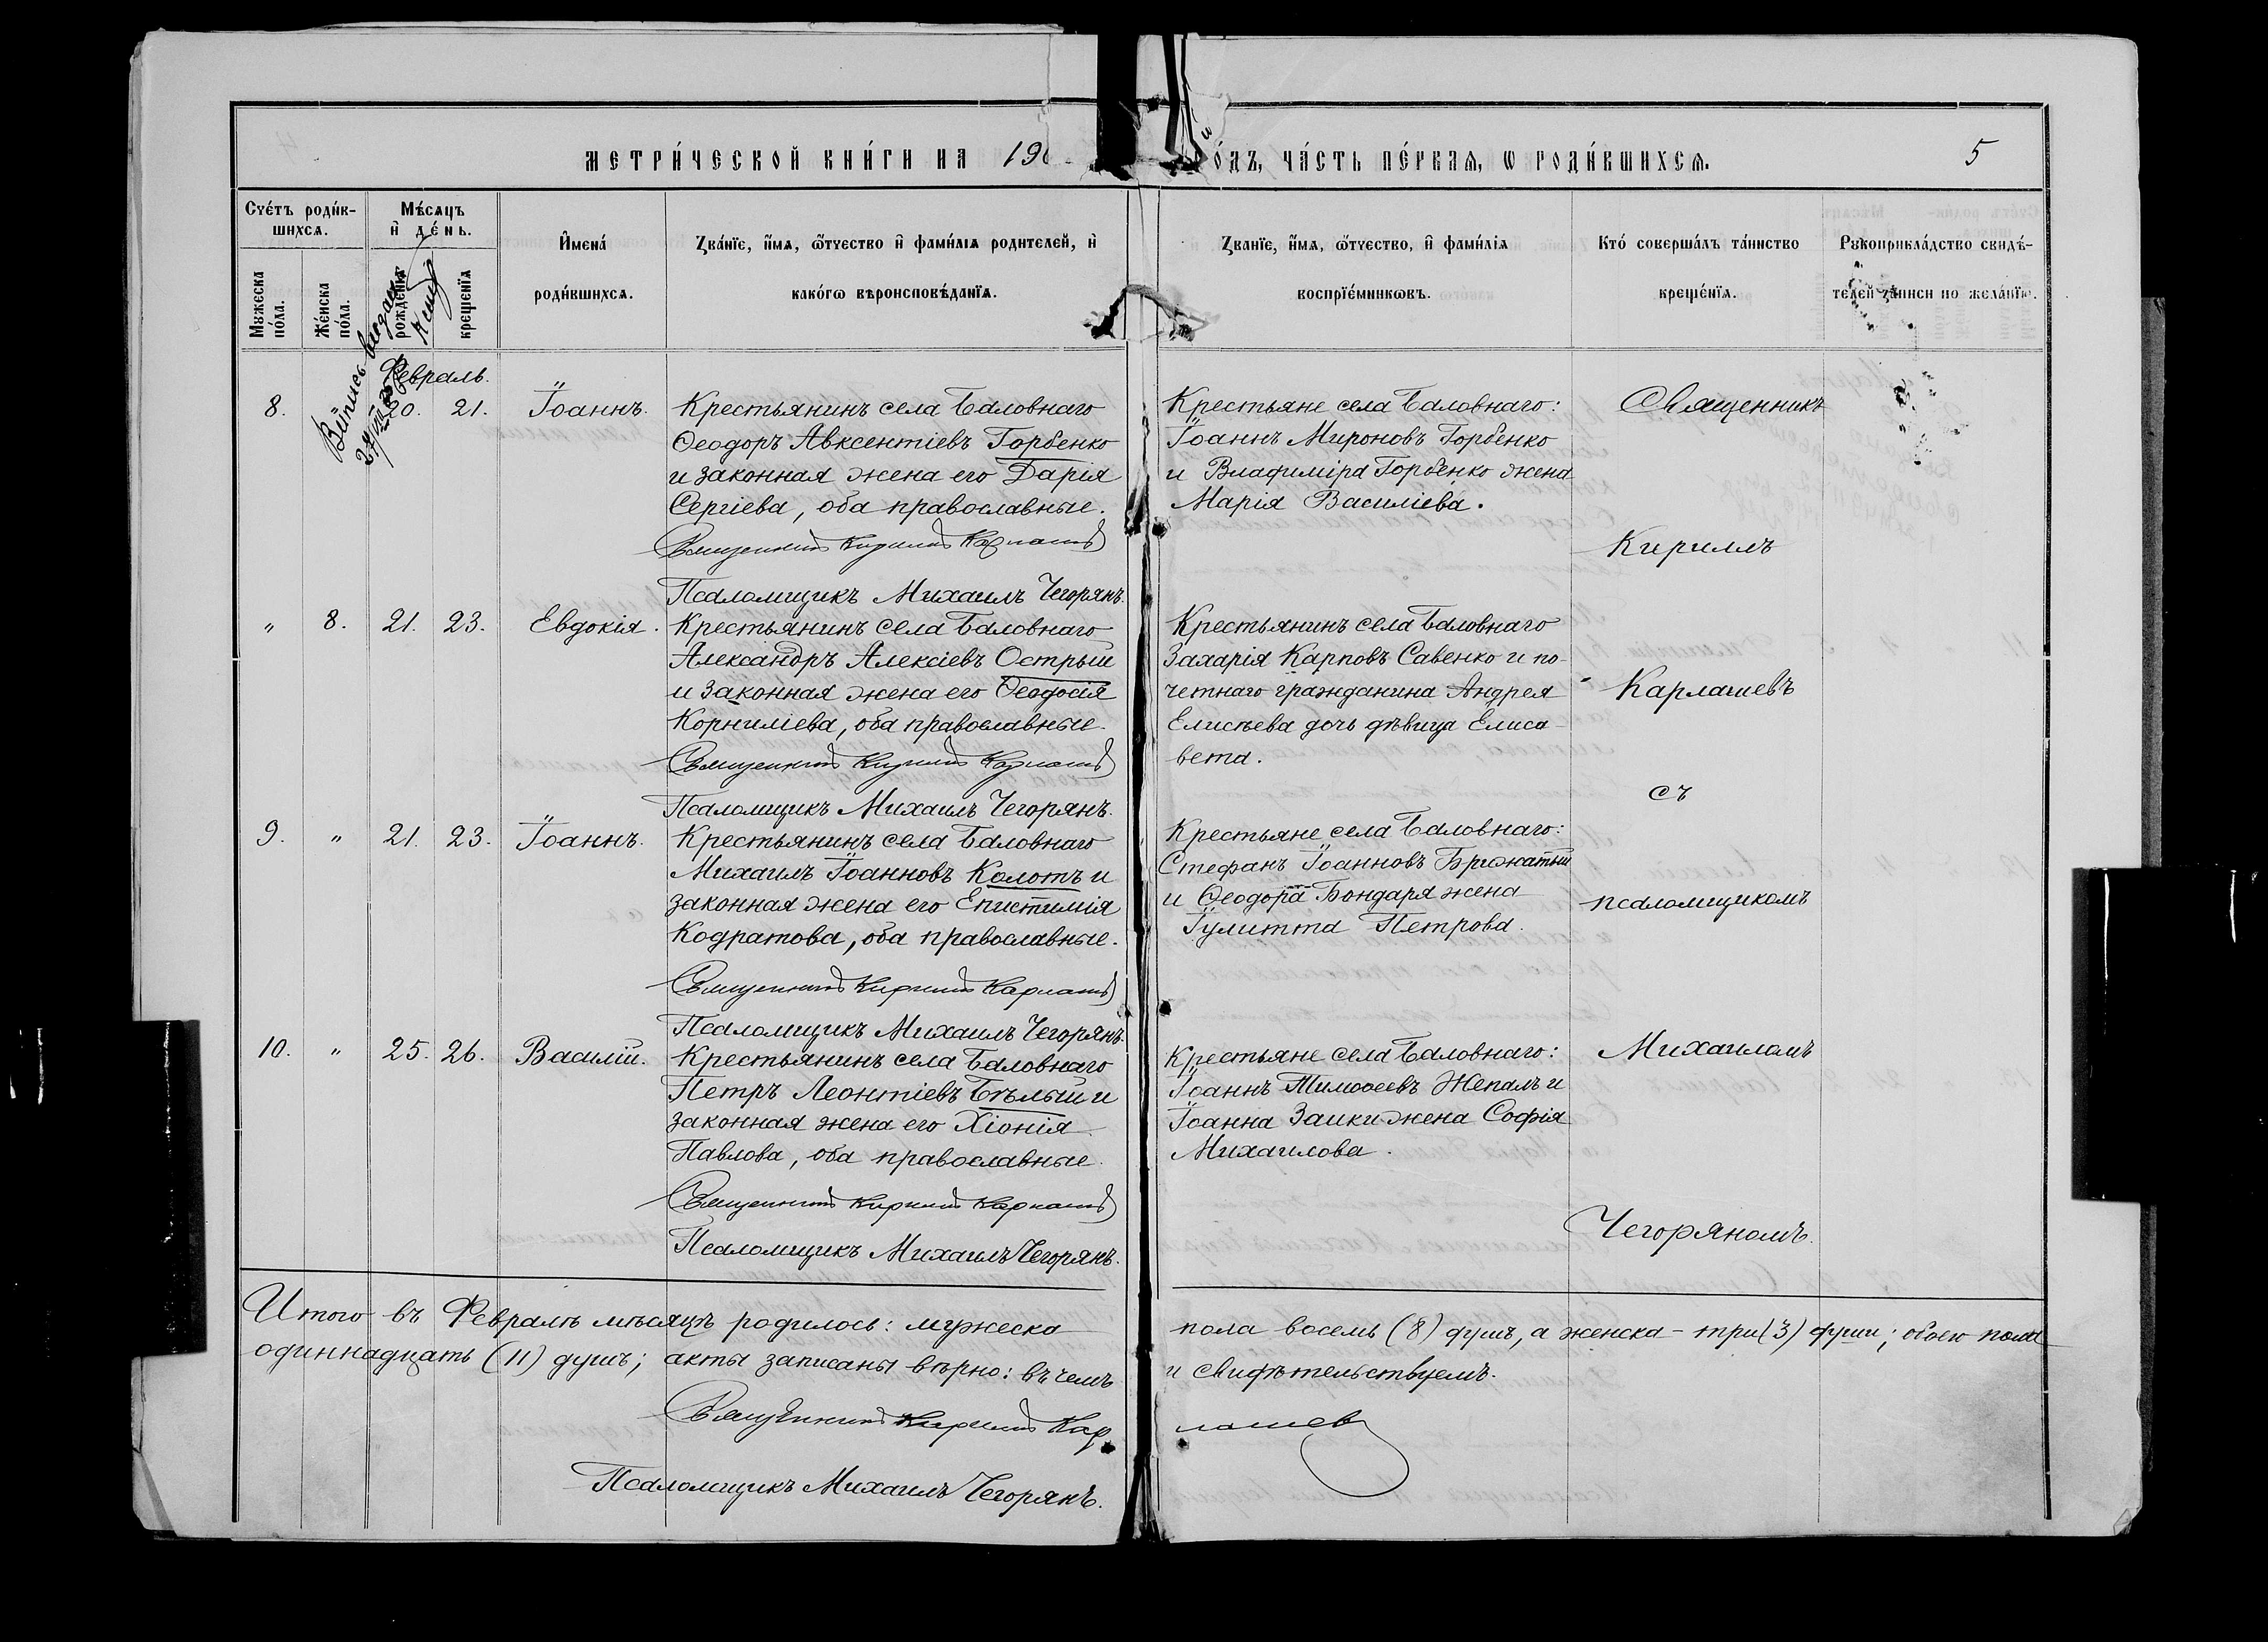 МЕТРИ́ЧЕСКОЙ КНИ́ГИ НА 190
О́ДЪ, ЧА́СТЬ ПЕ́РВАЯ, Ѡ РОДИ́ВШИХСѦ.
5
Сче́тъ роди́в-
шихсѧ.
Мѣ́сѧцъ
и҆ де́нь.
Мꙋжеска по́ла.
Же́нска по́ла.
рожде́нїѧ
креще́нїѧ
И҆мена́
роди́вшихсѧ.
Зва́нїе, и҆́мѧ, ѻ҆́тчество и҆ фамі́лїѧ родителей, и҆
како́гѡ вѣроисповѣ́данїѧ.
Зва́нїе, и҆́мѧ, ѻ҆́тчество, и҆ фамі́лїѧ
воспрїе́мникѡвъ.
Кто́ соверша́лъ та́инство
креще́нїѧ.
Рꙋкоприкла́дство свидѣ́-
телей за́писи по жела́нїю.
Выпись выдана
Февраль.
8. 20. 21. Іоаннъ.
Крестьянинъ села Баловнаго
Ѳеодоръ Авксентіевъ Горбенко
и законная жена его Дарія
Сергіева, оба православные.
Священникъ Кириллъ Карлашевъ
Псаломщикъ Михаилъ Чегорянъ.
Крестьяне села Баловнаго:
Іоаннъ Мироновъ Горбенко
и Владиміра Горбенко жена
Марія Василіева.
Священникъ
Кириллъ
Карлашевъ
съ
псаломщикомъ
Михаиломъ
Чегоряномъ.
" 8. 21. 23. Евдокія.
Крестьянинъ села Баловнаго
Александръ Алексіевъ Острый
и законная жена его Ѳеодосія
Корниліева, оба православные.
Священникъ Кириллъ Карлашевъ
Псаломщикъ Михаилъ Чегорянъ.
Крестьянинъ села Баловнаго
Захарія Карповъ Савенко и по-
четнаго гражданина Андрея
Елисѣева дочь дѣвица Елиса-
вета.
9. " 21. 23. Іоаннъ.
Крестьянинъ села Баловнаго
Михаилъ Іоанновъ Колотъ и
законная жена его Епистимія
Кодратова, оба православные.
Священникъ Кириллъ Карлашевъ
Псаломщикъ Михаилъ Чегорянъ.
Крестьяне села Баловнаго:
Стефанъ Іоанновъ Брюхатый
и Ѳеодора Бондаря жена
Іулитта Петрова.
10. " 25. 26. Василій.
Крестьянинъ села Баловнаго
Петръ Леонтіевъ Бѣлый и
законная жена его Хіонія
Павлова, оба православные.
Священникъ Кириллъ Карлашевъ
Псаломщикъ Михаилъ Чегорянъ.
Крестьяне села Баловнаго:
Іоаннъ Тимоѳеевъ Жепалъ и
Іоанна Заики жена Софія
Михаилова.
Итого въ Февралѣ мѣсяцѣ родилось: мужеска пола восемь (8) душъ, а женска - три (3) души; обоего пола
одиннадцать (11) душъ; акты записаны вѣрно: въ чемъ и свидѣтельствуемъ.
Священникъ Кириллъ Карлашевъ
Псаломщикъ Михаилъ Чегорянъ.